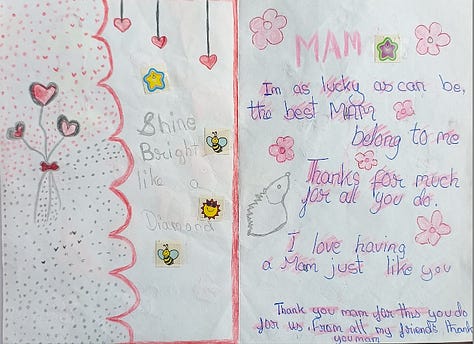 Shine
Bright
like a
Diamond
MAM
Im as lucky as can be,
the best Mam
belong to me
Thanks for much
for all you do.
I love having
a Mam just like you
Thank you mam for this you do
for us. From all my friends thank
you mam